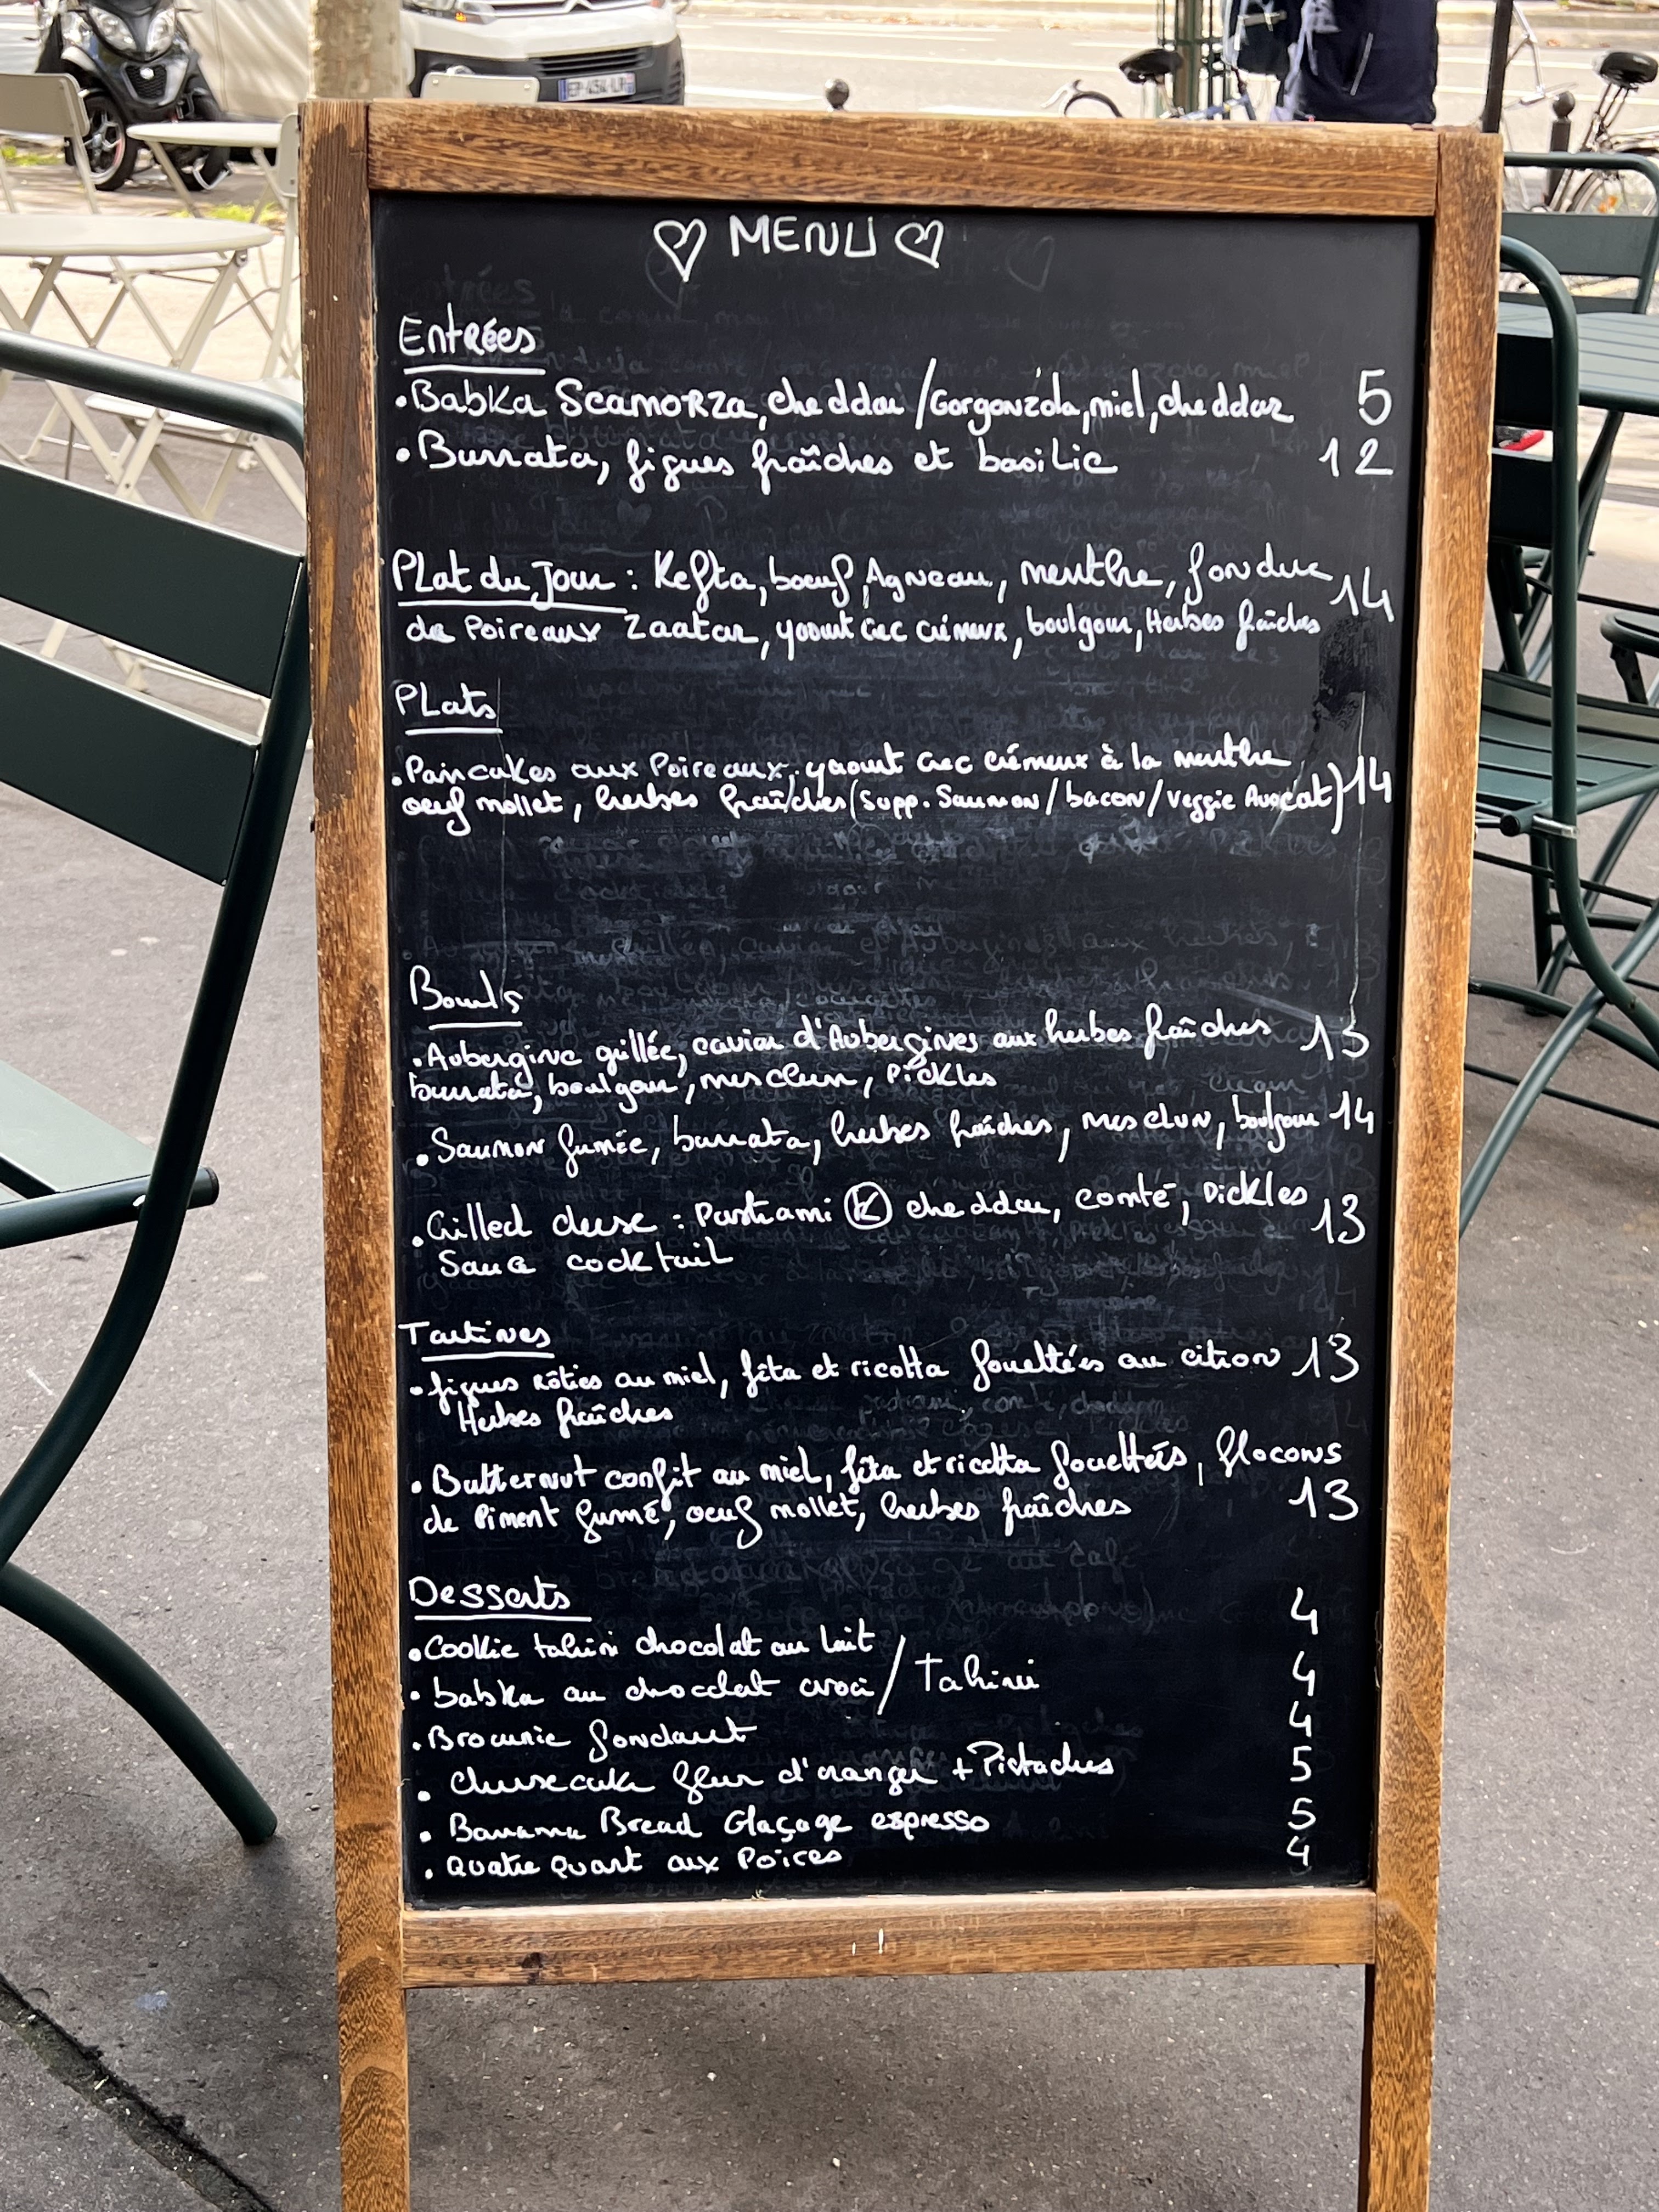 MENU
Entrées
• Babka Scamorza, cheddar / Gorgonzola, miel, cheddar 5
• Burrata, figues fraîches et basilic 12
Plat du Jour : Kefta, boeuf, Agneau, menthe, fondue 14
de Poireaux Zaatar, yaourt Grec crémeux, boulgour, Herbes fraîches
Plats
• Pancakes aux Poireaux, yaourt Grec crémeux à la menthe
oeuf mollet, herbes fraîches (Supp. Saumon / bacon / Veggie Avocat) 14
Bowls
• Aubergine grillée, caviar d'Aubergines aux herbes fraîches 13
burrata, boulgour, mesclun, Pickles
• Saumon fumée, burrata, herbes fraîches, mesclun, boulgour 14
• Grilled cheese : Pastrami K cheddar, comté, Pickles 13
Sauce cocktail
Tartines
• figues Rôties au miel, fêta et ricotta fouettées au citron 13
Herbes fraîches
• Butternut confit au miel, fêta et ricotta fouettées, flocons
de Piment fumé, oeuf mollet, herbes fraîches 13
Desserts
• Cookie tahini chocolat au lait 4
• babka au chocolat / Tahini 4
• Brownie fondant 4
• Cheesecake fleur d'oranger + Pistaches 5
• Banana Bread Glaçage espresso 5
• Quatre Quart aux Poires 4